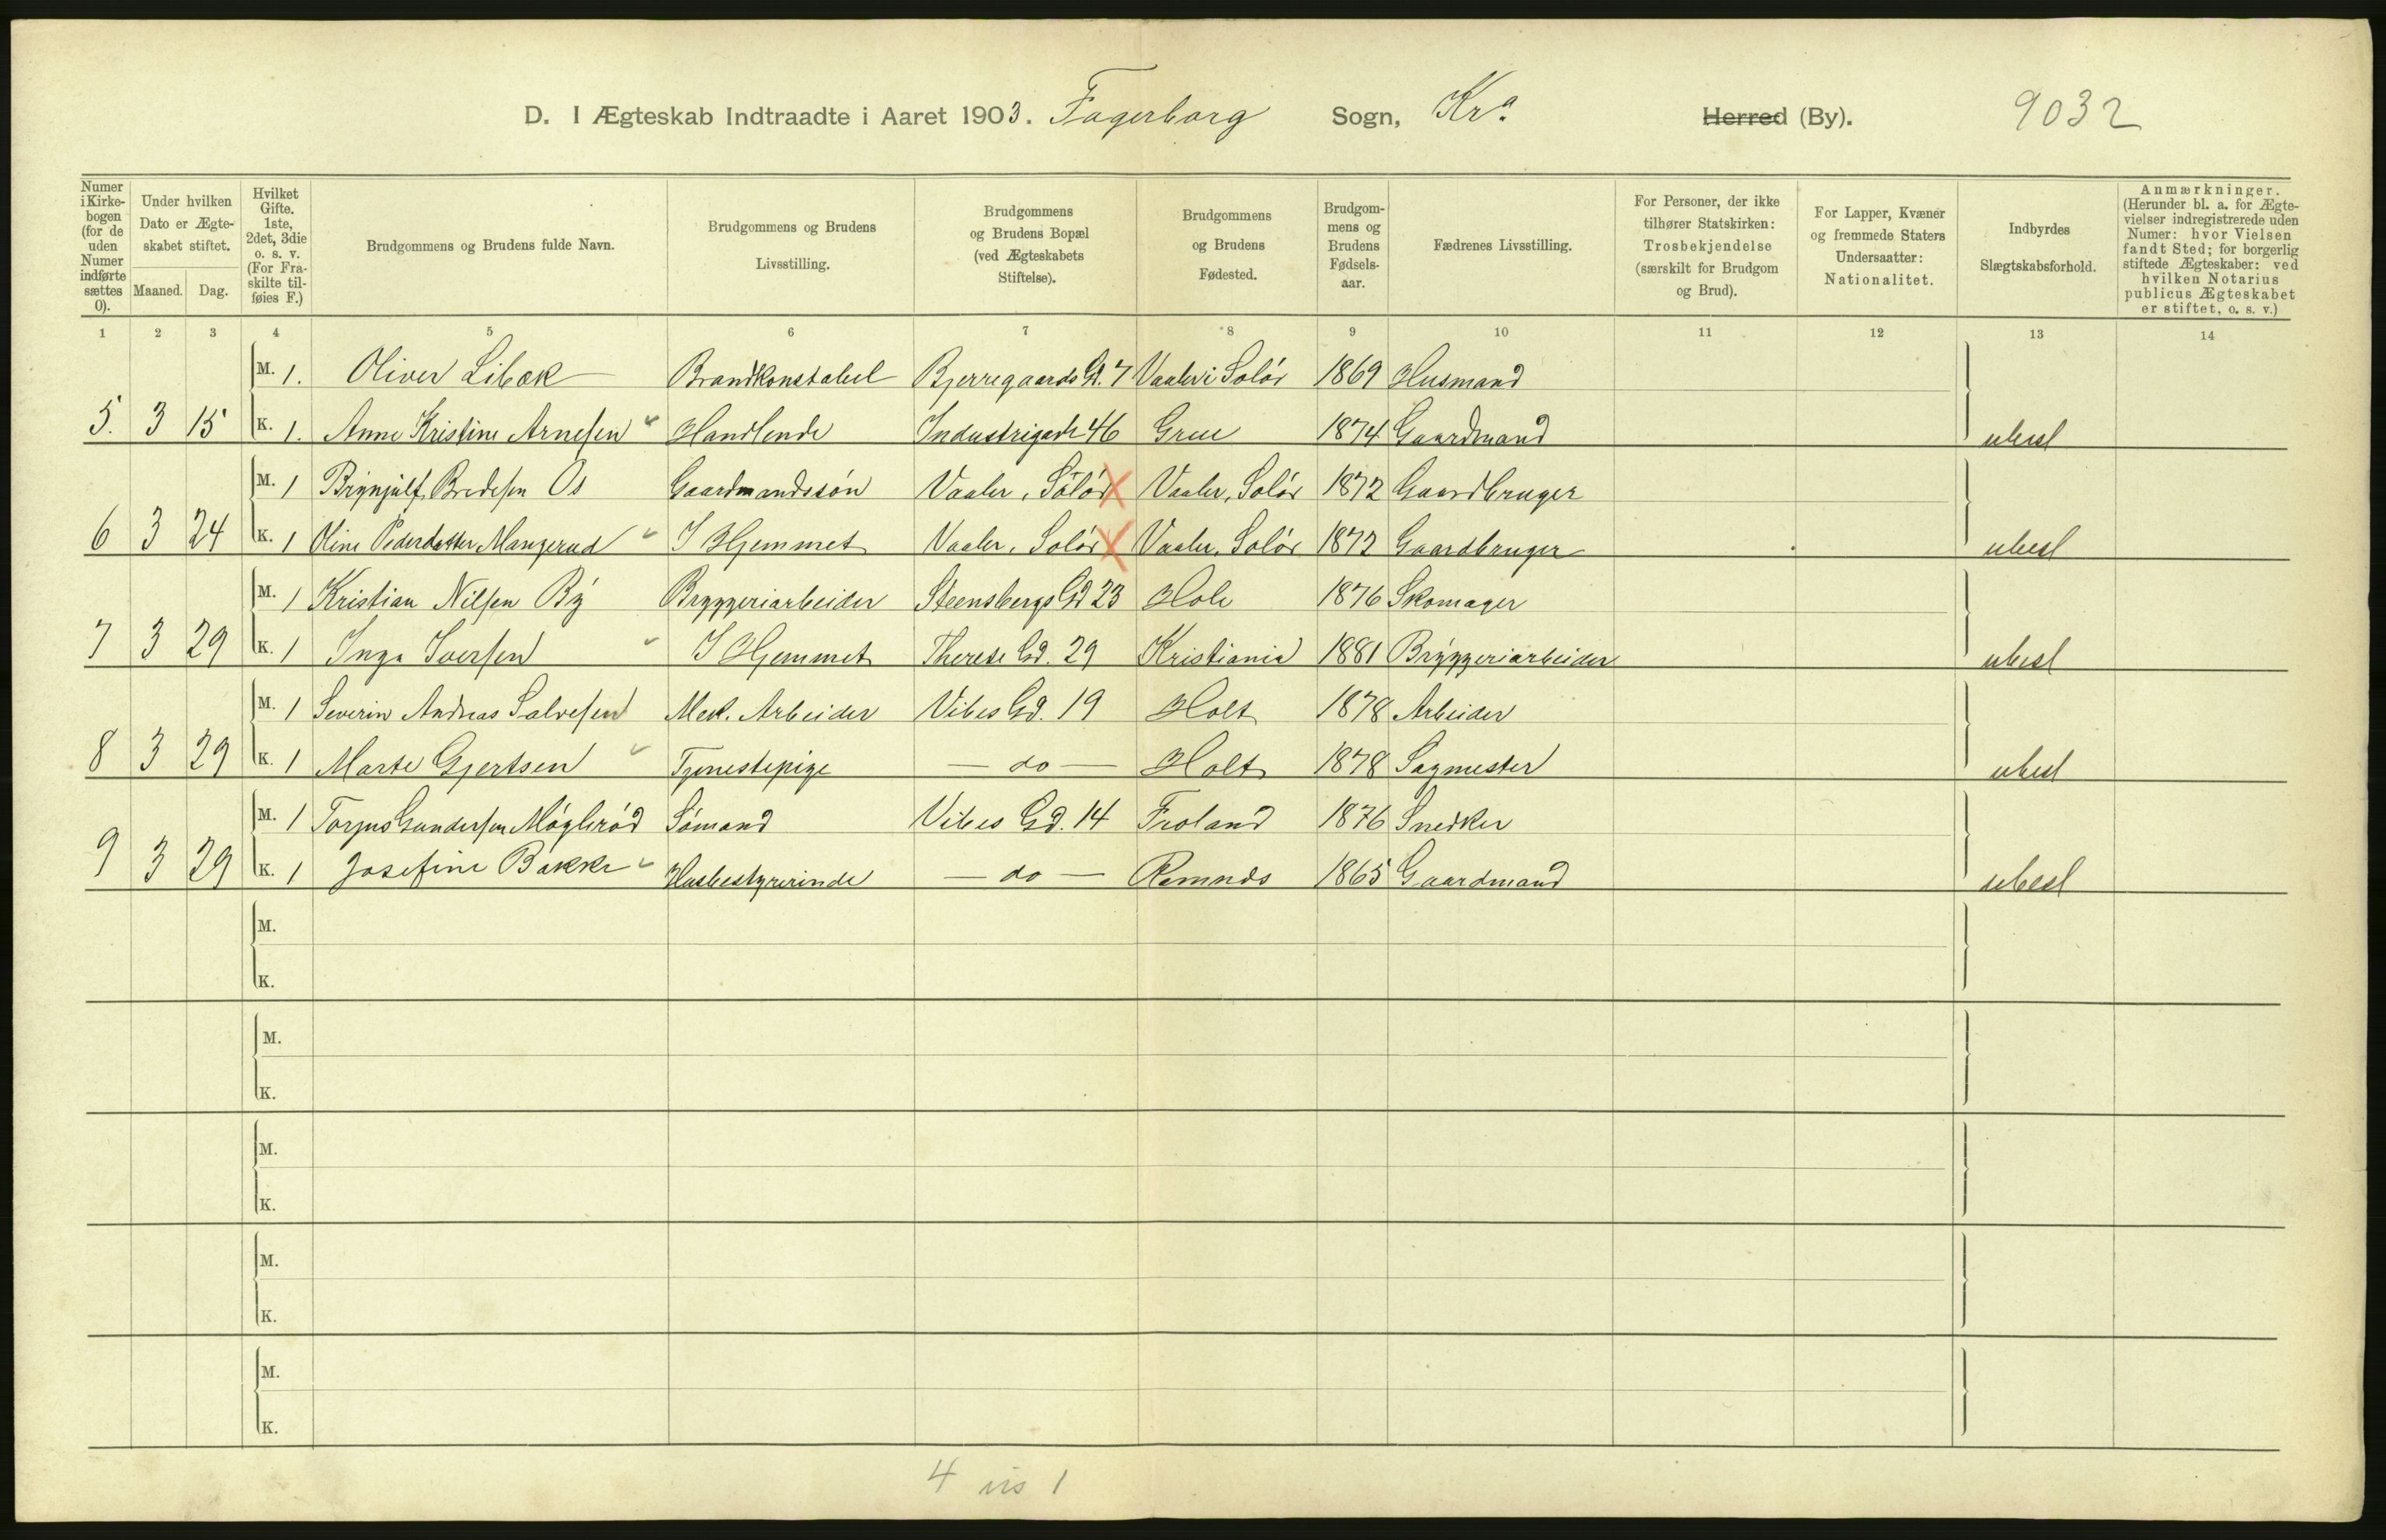 D. I Ægteskab Indtraadte i Aaret 1903. Fagerborg Sogn, Kra. Herred (By). 9032
Numer i Kirkebogen (for de uden Numer indførte sættes 0).
Under hvilken Dato er Ægteskabet stiftet.
Maaned. Dag.
Hvilket Gifte. 1ste, 2det, 3die o. s. v. (For Fraskilte tilføies F.)
Brudgommens og Brudens fulde Navn.
Brudgommens og Brudens Livsstilling.
Brudgommens og Brudens Bopæl (ved Ægteskabets Stiftelse).
Brudgommens og Brudens Fødested.
Brudgommens og Brudens Fødselsaar.
Fædrenes Livsstilling.
For Personer, der ikke tilhører Statskirken: Trosbekjendelse (særskilt for Brudgom og Brud).
For Lapper, Kvæner og fremmede Staters Undersaatter: Nationalitet.
Indbyrdes Slægtskabsforhold.
Anmærkninger. (Herunder bl. a. for Ægtevielser indregistrerede uden Numer: hvor Vielsen fandt Sted; for borgerlig stiftede Ægteskaber: ved hvilken Notarius publicus Ægteskabet er stiftet, o. s. v.)
1 2 3 4 5 6 7 8 9 10 11 12 13 14
M. 1. Oliver Libæk Brandkonstabel Bjerregaards Gd. 7 Vaaler i Solør 1869 Husmand
5. 3 15 K. 1. Anne Kristine Arnesen Handlende Industrigade 46 Grue 1874 Gaardmand ubesl
M. 1 Brynjulf Bredesen Os Gaardmandssøn Vaaler, Solør Vaaler, Solør 1872 Gaardbruger
6 3 24 K. 1 Oline Pedersdatter Mangerud I Hjemmet Vaaler, Solør Vaaler, Solør 1872 Gaardbruger ubesl
M. 1 Kristian Nilsen By Bryggeriarbeider Steensbergs Gd 23 Hole 1876 Skomager
7 3 29 K. 1 Inga Iversen I Hjemmet Therese Gd. 29 Kristiania 1881 Bryggeriarbeider ubesl
M. 1 Severin Andreas Salvesen Mek. Arbeider Vibes Gd. 19 Holt 1878 Arbeider
8 3 29 K. 1 Marte Gjertsen Tjenestepige — do — Holt 1878 Sagmester ubesl
M. 1 Torjus Gundersen Møglerød Sømand Vibes Gd. 14 Froland 1876 Snedker
9 3 29 K. 1 Josefine Bakke Husbestyrerinde — do — Romnes 1865 Gaardmand ubesl
M.
K.
M.
K.
M.
K.
M.
K.
M.
K.
4 vis 1